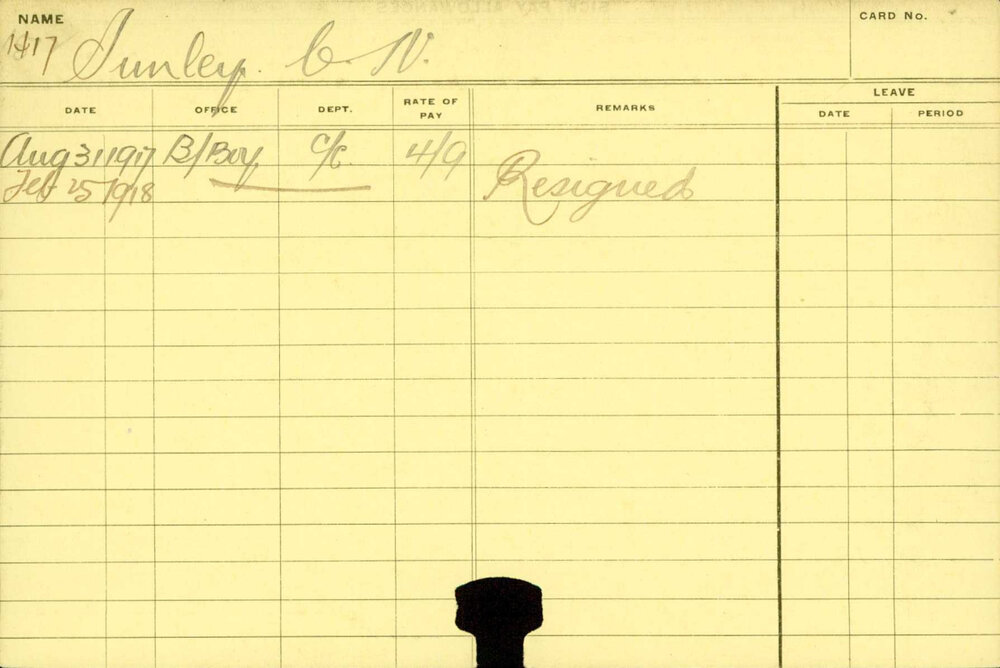 NAME
CARD No.
1417 Tunley. C. W.
LEAVE
DATE OFFICE DEPT. RATE OF PAY REMARKS DATE PERIOD
Aug 31 1917 B/Boy C/C. 4/9
Feb 25 1918 Resigned